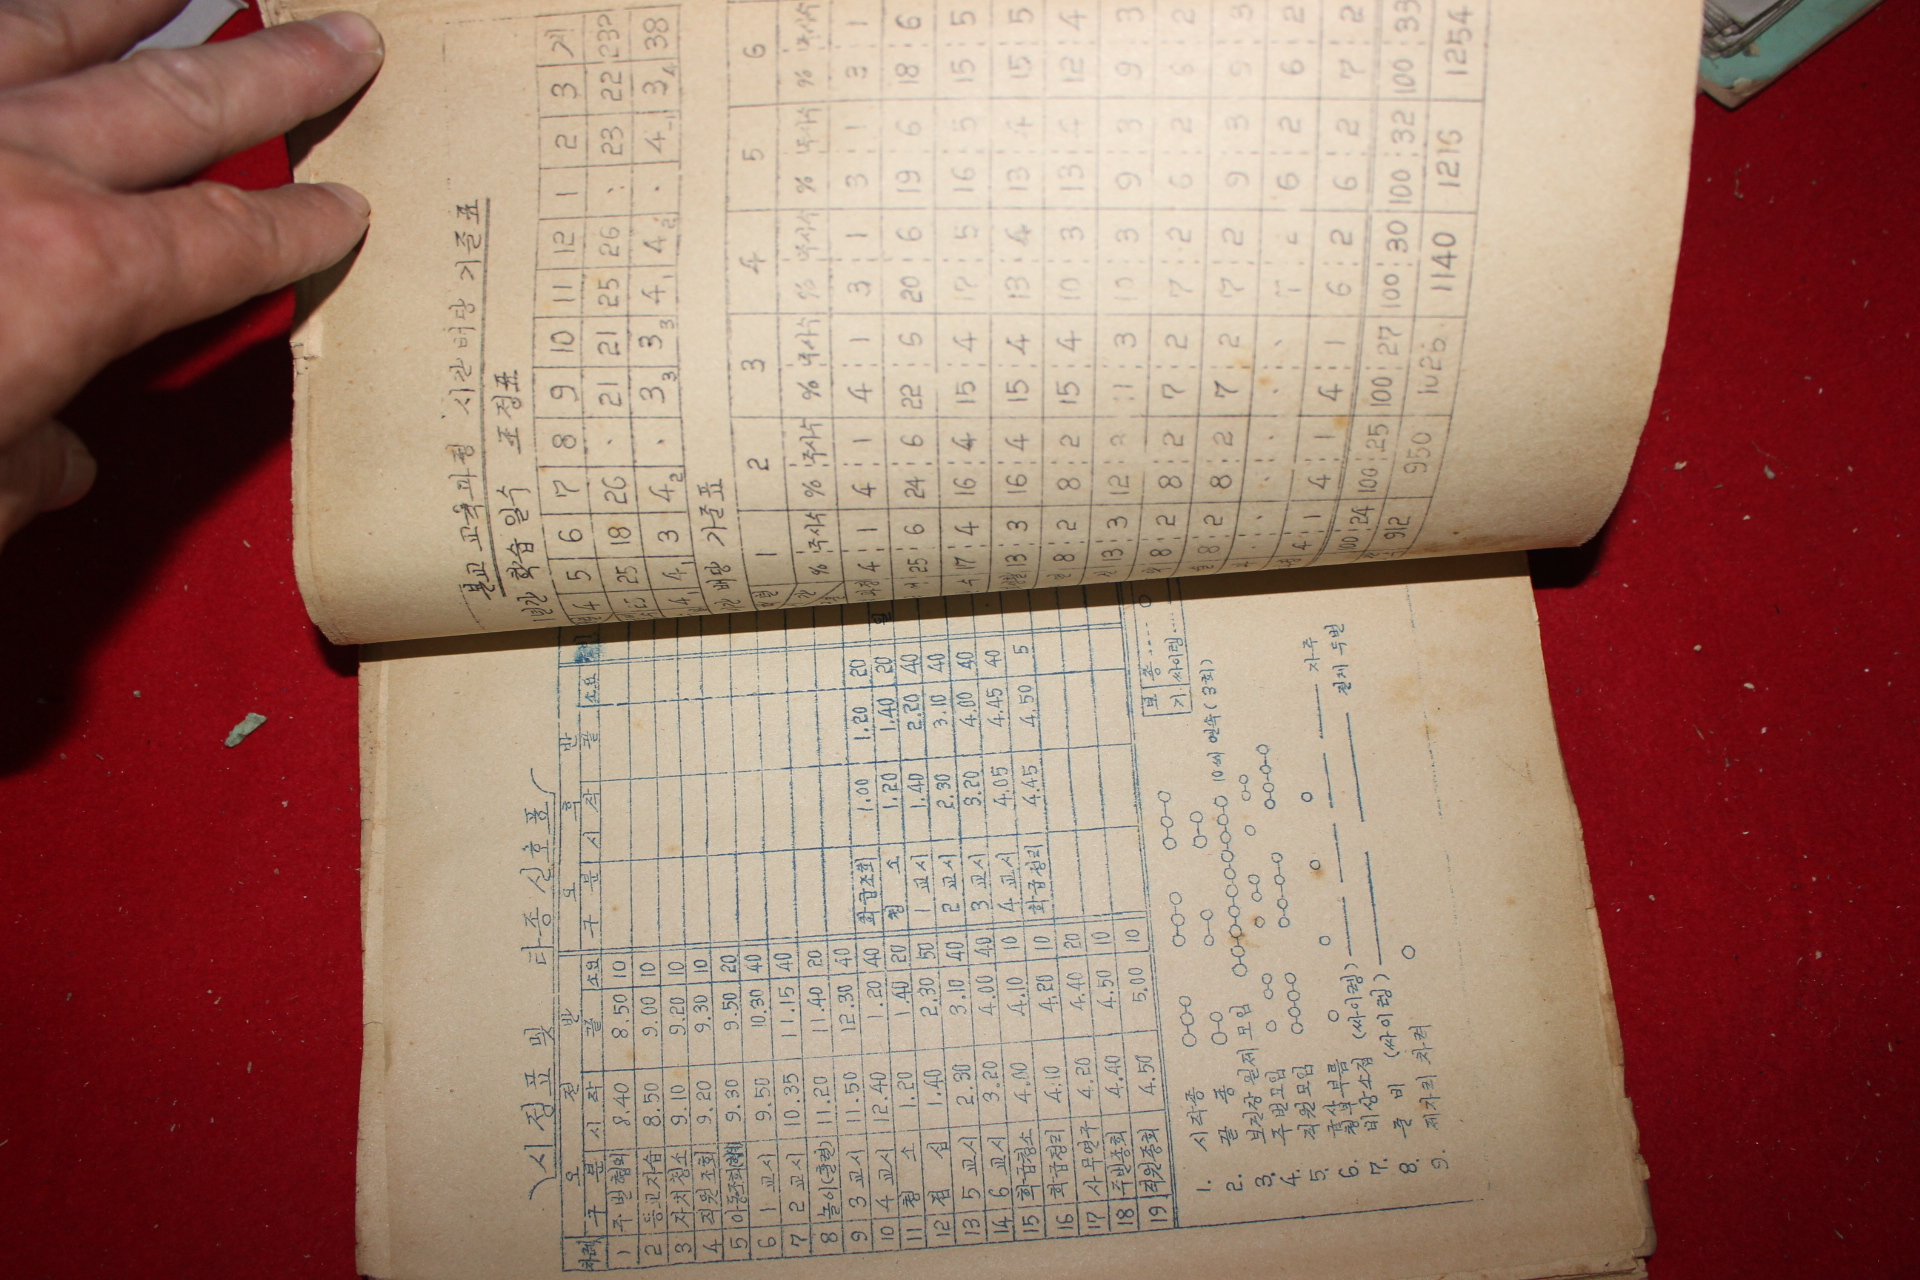 본교 교육과정 시간배당 기준표
년간 학습 일수 조정표
4 5 6 7 8 9 10 11 12 1 2 3 계
25 18 26 . 21 21 25 26 . 23 22 232
4₁ 3 4₂ . 3₃ 3₃ 4₁ 4₂ . 4₋₁ 3₄ 38
시간 배당 기준표
1 2 3 4 5 6
% 주시수 % 주시수 % 주시수 % 주시수 % 주시수 % 주시수
4 1 4 1 4 1 3 1 3 1 3 1
25 6 24 6 22 6 20 6 19 6 18 6
17 4 16 4 15 4 17 5 16 5 15 5
13 3 16 4 15 4 13 4 13 4 15 5
8 2 8 2 15 4 10 3 13 4 12 4
13 3 12 3 11 3 10 3 9 3 9 3
8 2 8 2 7 2 7 2 6 2 6 2
8 2 8 2 7 2 7 2 9 3 9 3
6 2 6 2
4 1 4 1 4 1 6 2 6 2 7 2
100 24 100 25 100 27 100 30 100 32 100 33
912 950 1026 1140 1216 1254
시정표 및 타종신호표
오 전 반 오 후 반
차례 구분 시작 끝 소요 구분 시작 끝 소요
1 주번협의 8.40 8.50 10
2 등교자습 8.50 9.00 10
3 자치청소 9.10 9.20 10
4 직원조회 9.20 9.30 10
5 아동조회 9.30 9.50 20
6 1 교시 9.50 10.30 40
7 2 교시 10.35 11.15 40
8 놀이(훈련) 11.20 11.40 20
9 3 교시 11.50 12.30 40 학급조회 1.00 1.20 20
10 4 교시 12.40 1.20 40 청 소 1.20 1.40 20
11 청 소 1.20 1.40 20 1 교시 1.40 2.20 40
12 점 심 1.40 2.30 50 2 교시 2.30 3.10 40
13 5 교시 2.30 3.10 40 3 교시 3.20 4.00 40
14 6 교시 3.20 4.00 40 4 교시 4.05 4.45 40
15 학급청소 4.00 4.10 10 학급정리 4.45 4.50 5
16 학급정리 4.10 4.20 10
17 사무연구 4.20 4.40 20
18 주번종회 4.40 4.50 10
19 직원종회 4.50 5.00 10
보기 종 .... O
싸이렝 ....
1. 시작종 O-O-O O-O-O O-O-O
2. 끝 종 O-O O-O O-O
3. 모임 O-O-O-O-O-O-O-O-O-O 10씩 연속 (3회)
4. 주번모임 O O-O O O-O O O-O
직원모임 O-O-O-O O-O-O-O O-O-O-O
5. O O O O
6. (싸이렝) 자주
7. 비상소집 (싸이렝) 길게 두번
8. 준 비 O
9. 제자리 차렷